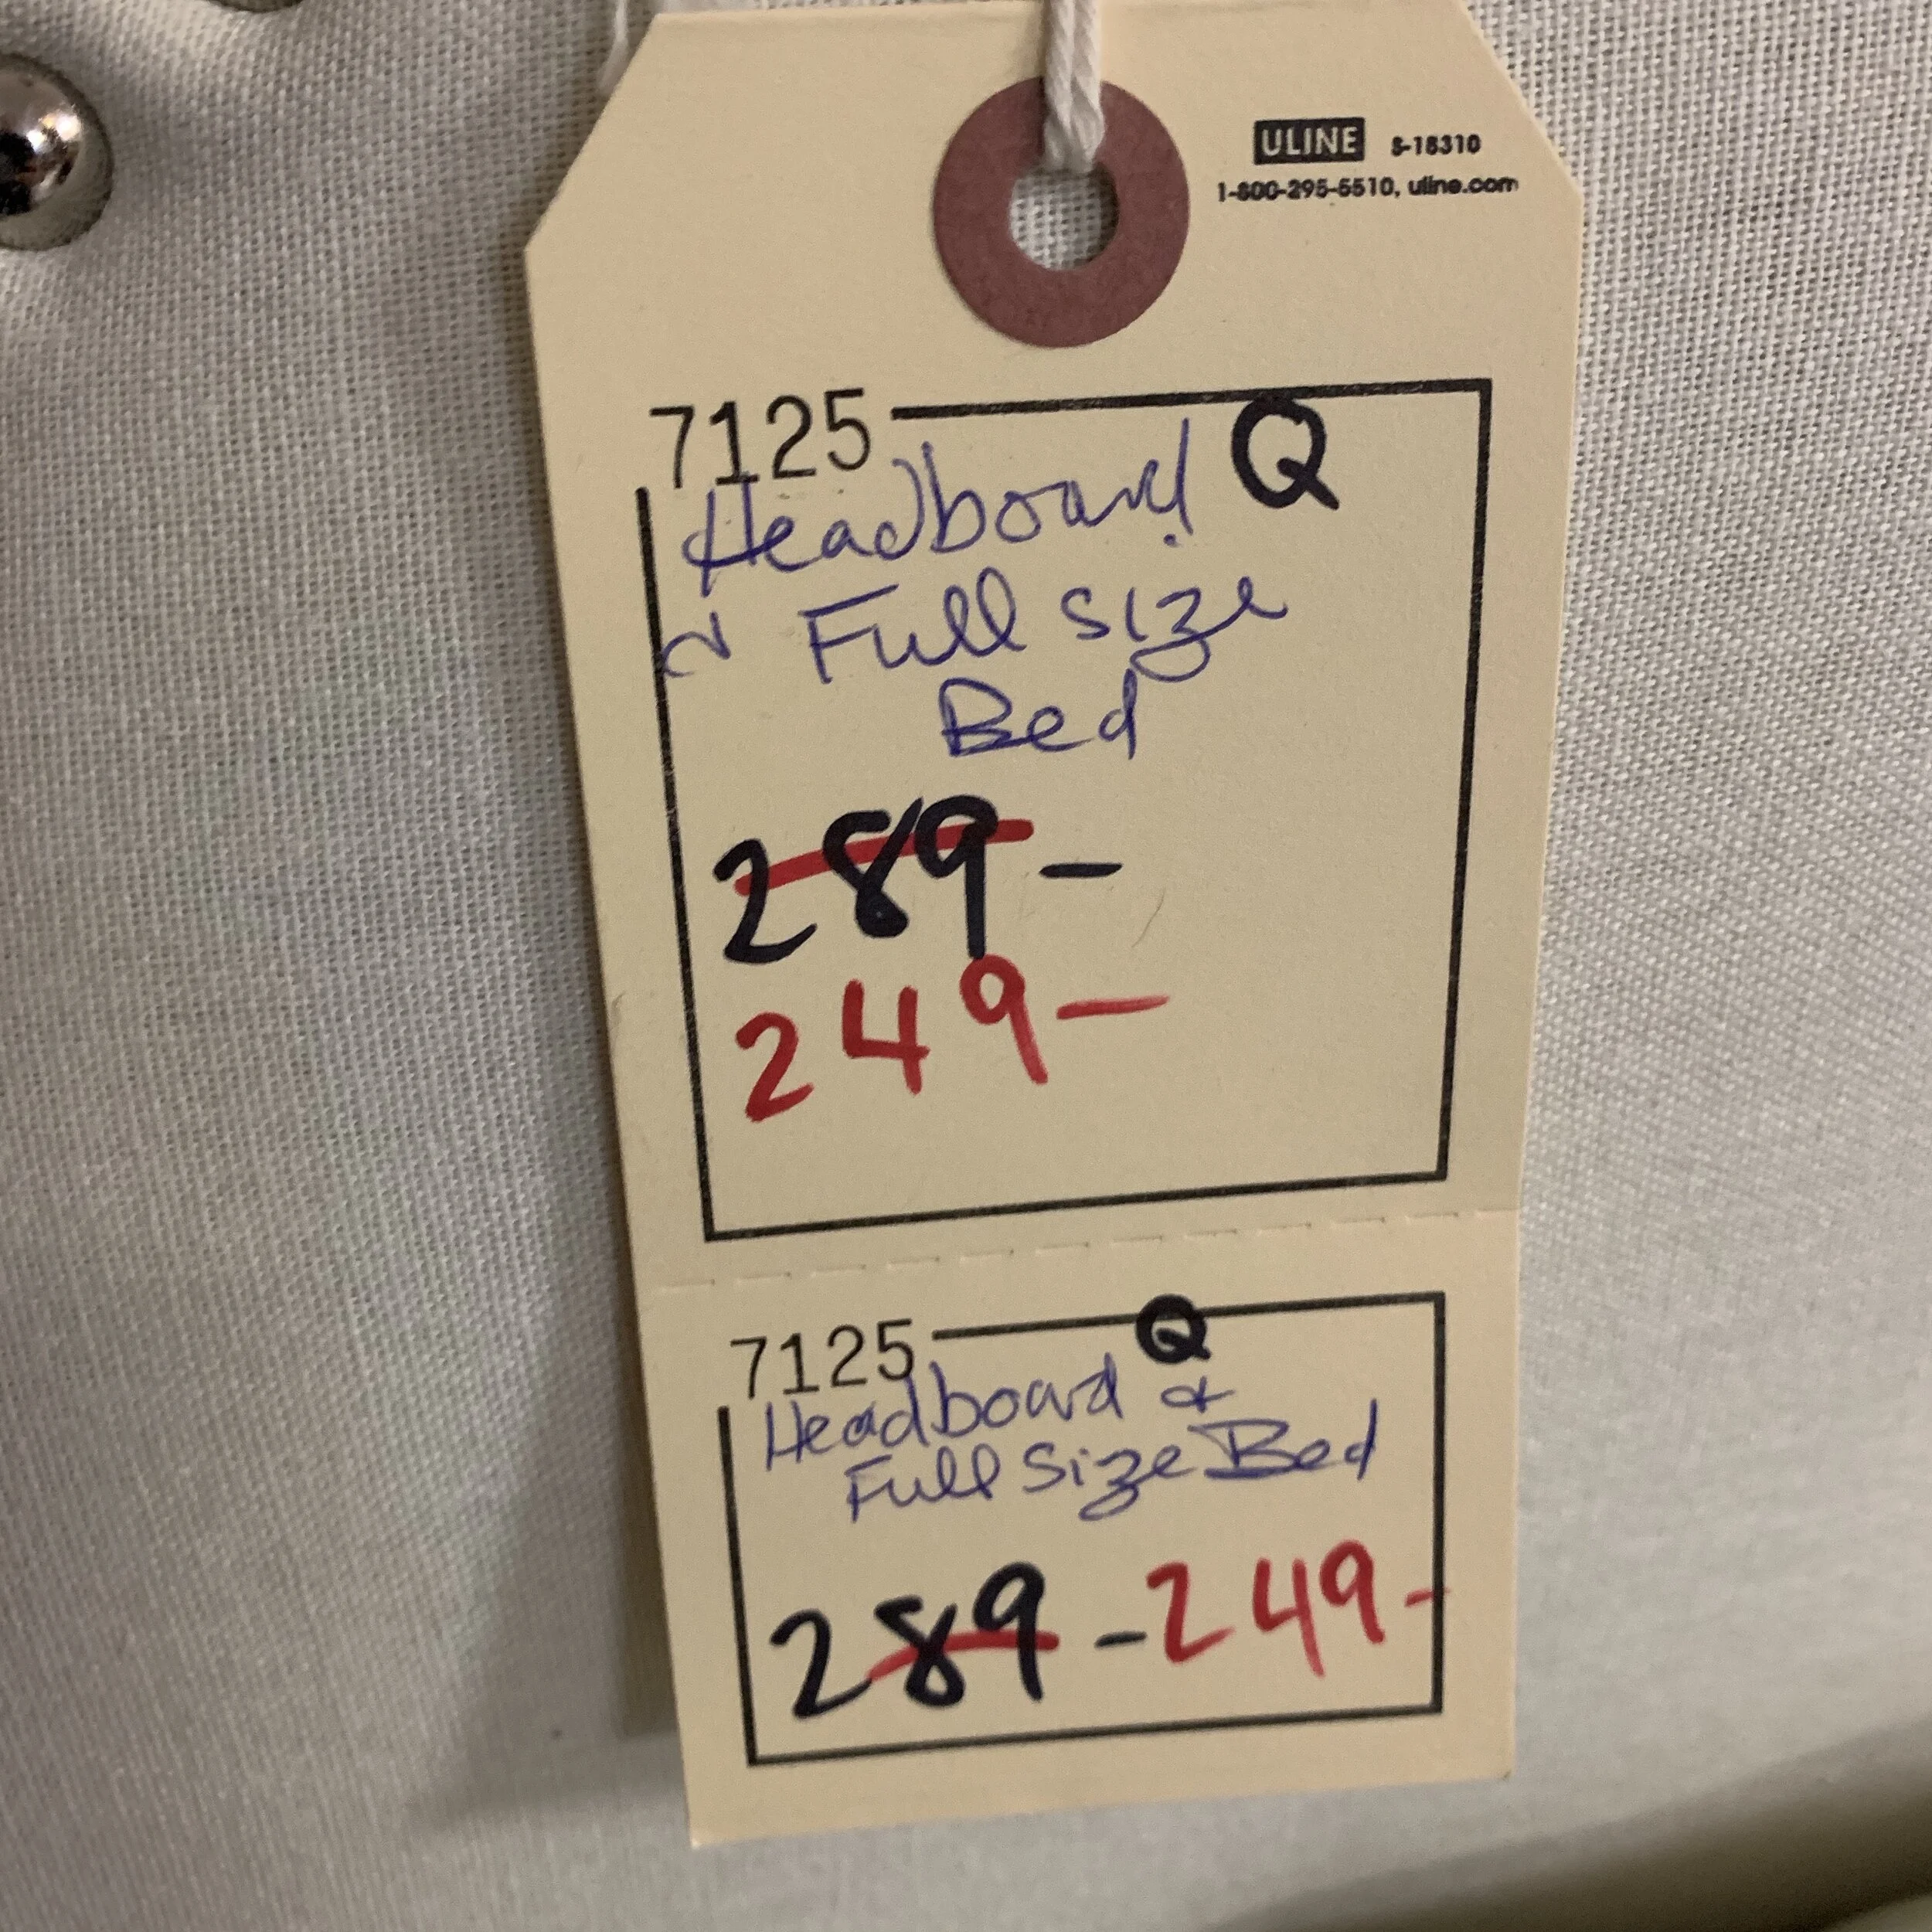 ULINE S-18310
1-800-295-5510, uline.com
7125 Q
Headboard
Full size
Bed
289-
249-
7125 Q
Headboard &
Full Size Bed
289 - 249-